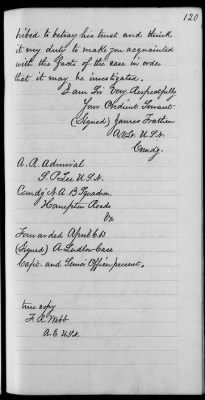 120
bibed to betray his trust and think
it my duty to make you acquainted
with the facts of the case in order
that it may be investigated.
I am Sir Very Respectfully
Your Obedient Servant
(Signed) James Trathen
A.V.Lt. U.S.N.
Comdg.
A. R. Admiral
S. P. Lee U.S.N.
Comdg N. A. B. Squadron
Hampton Roads
Va
Forwarded April 6th
(Signed) A. Ludlow Case
Capt. and Senior Officer present.
true copy
F. A. Webb
A. E. U.S.N.